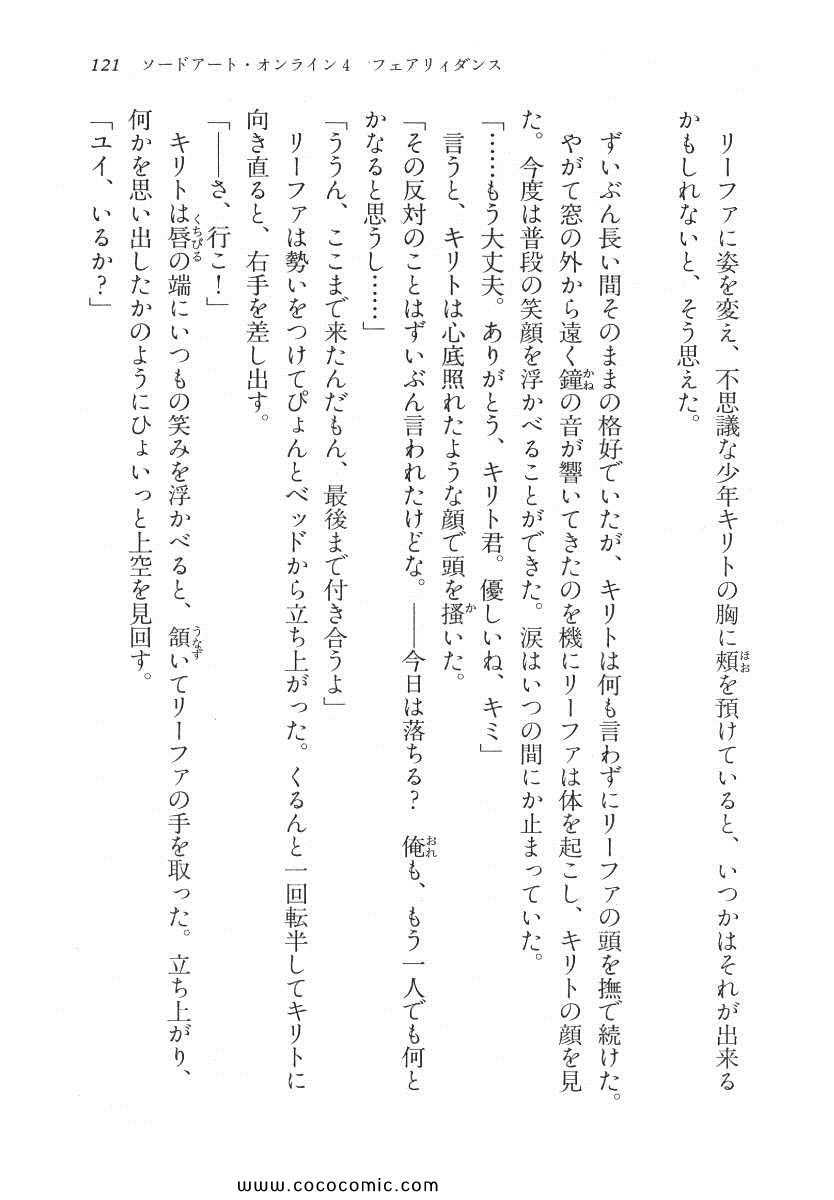 121　ソードアート・オンライン4　フェアリィダンス
　リーファに姿を変え、不思議な少年キリトの胸に頬を預けていると、いつかはそれが出来る
かもしれないと、そう思えた。
　ずいぶん長い間そのままの格好でいたが、キリトは何も言わずにリーファの頭を撫で続けた。
　やがて窓の外から遠く鐘の音が響いてきたのを機にリーファは体を起こし、キリトの顔を見
た。今度は普段の笑顔を浮かべることができた。涙はいつの間にか止まっていた。
「……もう大丈夫。ありがとう、キリト君。優しいね、キミ」
　言うと、キリトは心底照れたような顔で頭を搔いた。
「その反対のことはずいぶん言われたけどな。――今日は落ちる？　俺も、もう一人でも何と
かなると思うし……」
「ううん、ここまで来たんだもん、最後まで付き合うよ」
　リーファは勢いをつけてぴょんとベッドから立ち上がった。くるんと一回転半してキリトに
向き直ると、右手を差し出す。
「――さ、行こ！」
　キリトは唇の端にいつもの笑みを浮かべると、頷いてリーファの手を取った。立ち上がり、
何かを思い出したかのようにひょいっと上空を見回す。
「ユイ、いるか？」
www.cococomic.com